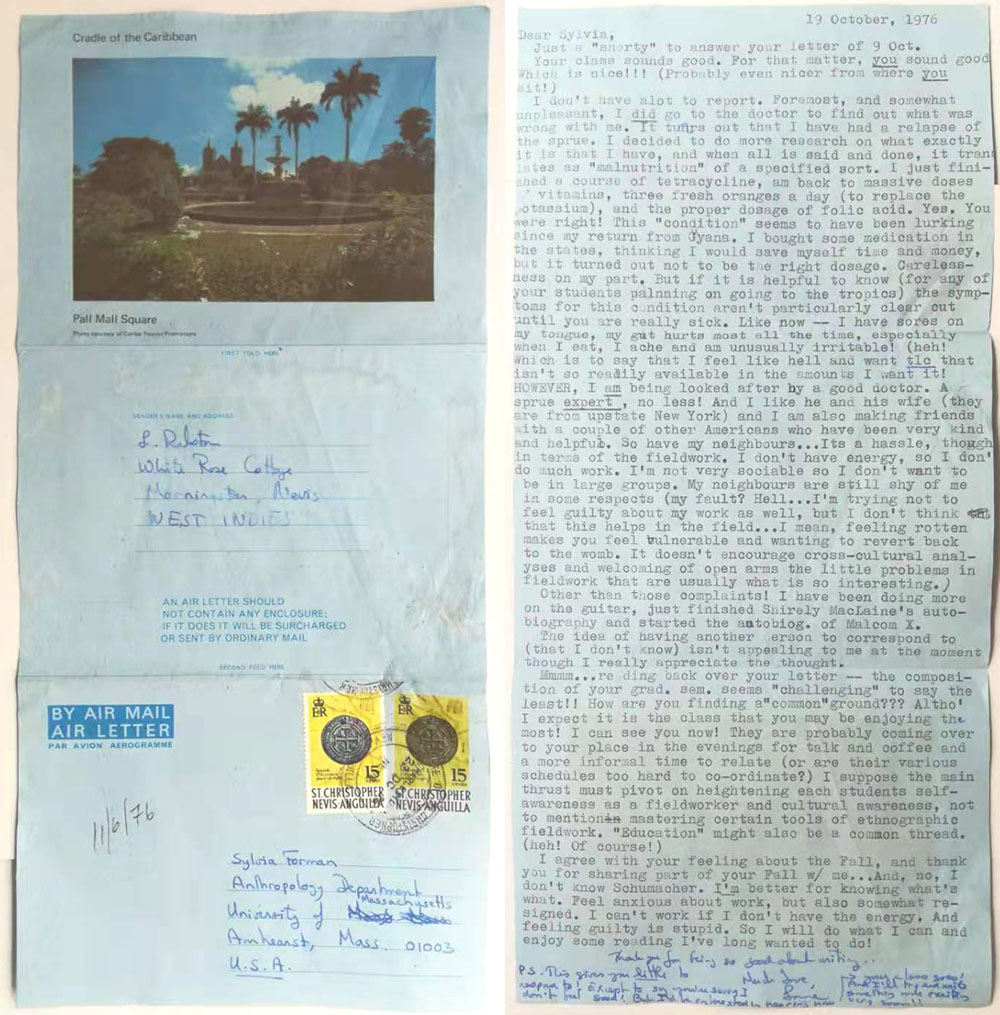 Cradle of the Caribbean
Pall Mall Square
Photo courtesy of Caribe Tourist Promotions
FIRST FOLD HERE
SENDER'S NAME AND ADDRESS
White Rose Cottage
Nevis
WEST INDIES
AN AIR LETTER SHOULD
NOT CONTAIN ANY ENCLOSURE;
IF IT DOES IT WILL BE SURCHARGED
OR SENT BY ORDINARY MAIL
SECOND FOLD HERE
BY AIR MAIL
AIR LETTER
PAR AVION AEROGRAMME
E R
15
CENTS
ST CHRISTOPHER
NEVIS ANGUILLA
E R
15
ST CHRISTOPHER
NEVIS ANGUILLA
11/6/76
Sylvia Forman
Anthropology Department
Massachusetts
University of
Amhearst, Mass. 01003
U.S.A.
19 October, 1976
Dear Sylvia,
Just a "shorty" to answer your letter of 9 Oct.
Your class sounds good. For that matter, you sound good
Which is nice!!! (Probably even nicer from where you
sit!)
I don't have alot to report. Foremost, and somewhat
unpleasant, I did go to the doctor to find out what was
wrong with me. It turns out that I have had a relapse of
the sprue. I decided to do more research on what exactly
it is that I have, and when all is said and done, it tran
lates as "malnutrition" of a specified sort. I just fini-
shed a course of tetracycline, am back to massive doses
of vitamins, three fresh oranges a day (to replace the
potassium), and the proper dosage of folic acid. Yes. You
were right! This "condition" seems to have been lurking
since my return from Gyana. I bought some medication in
the states, thinking I would save myself time and money,
but it turned out not to be the right dosage. Careless-
ness on my part. But if it is helpful to know (for any of
your students palnning on going to the tropics) the symp-
toms for this condition aren't particularly clear cut
until you are really sick. Like now -- I have sores on
my tongue, my gut hurts most all the time, especially
when I eat, I ache and am unusually irritable! (heh!
Which is to say that I feel like hell and want tlc that
isn't so readily available in the amounts I want it!
HOWEVER, I am being looked after by a good doctor. A
sprue expert, no less! And I like he and his wife (they
are from upstate New York) and I am also making friends
with a couple of other Americans who have been very kind
and helpful. So have my neighbours...Its a hassle, though
in terms of the fieldwork. I don't have energy, so I don'
do much work. I'm not very sociable so I don't want to
be in large groups. My neighbours are still shy of me
in some respects (my fault? Hell...I'm trying not to
feel guilty about my work as well, but I don't think
that this helps in the field...I mean, feeling rotten
makes you feel vulnerable and wanting to revert back
to the womb. It doesn't encourage cross-cultural anal-
yses and welcoming of open arms the little problems in
fieldwork that are usually what is so interesting.)
Other than those complaints! I have been doing more
on the guitar, just finished Shirely MacLaine's auto-
biography and started the autobiog. of Malcom X.
The idea of having another erson to correspond to
(that I don't know) isn't appealing to me at the moment
though I really appreciate the thought.
Mmmmm...re ding back over your letter -- the composi-
tion of your grad. sem. seems "challenging" to say the
least!! How are you finding a"common"ground??? Altho'
I expect it is the class that you may be enjoying the
most! I can see you now! They are probably coming over
to your place in the evenings for talk and coffee and
a more informal time to relate (or are their various
schedules too hard to co-ordinate?) I suppose the main
thrust must pivot on heightening each students self-
awareness as a fieldworker and cultural awareness, not
to mention mastering certain tools of ethnographic
fieldwork. "Education" might also be a common thread.
(heh! Of course!)
I agree with your feeling about the Fall, and thank
you for sharing part of your Fall w/ me...And, no, I
don't know Schumacher. I'm better for knowing what's
what. Feel anxious about work, but also somewhat re-
signed. I can't work if I don't have the energy. And
feeling guilty is stupid. So I will do what I can and
enjoy some reading I've long wanted to do!
Thank you for being so good about writing..
Much love,
P.S. This gives you little to
respond to! Except to say you're sorry I
don't feel good! But I'd be interested in hearing how
And I'll try and write
something more exciting
very soon!!